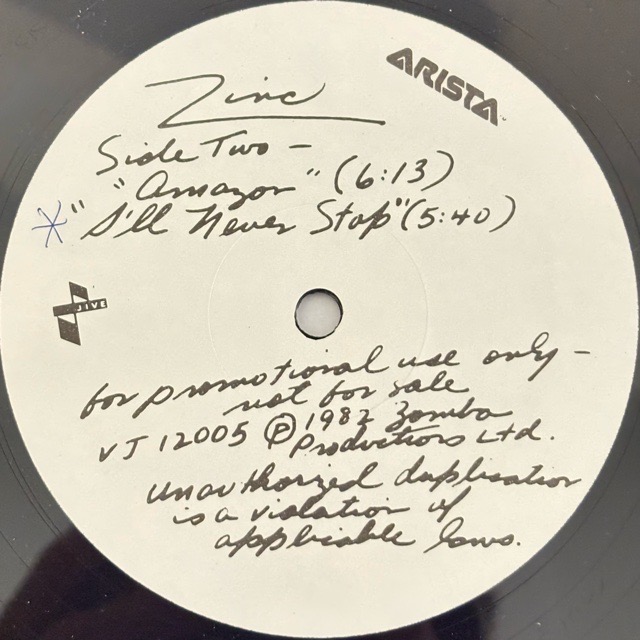 ARISTA™
Zinc
Side Two -
"Amazon" (6:13)
* "I'll Never Stop" (5:40)
JIVE
for promotional use only -
not for sale
VJ 12005 Ⓟ 1982 Zomba
Productions Ltd.
unauthorized duplication
is a violation of
applicable laws.